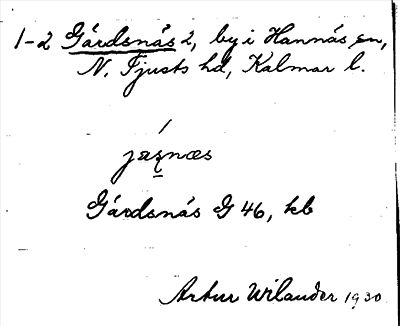 1-2 Gårdsnäs 2, by i Hannäs sn,
N. Tjusts hd, Kalmar l.
Gårdsnäs G 46, kb
Artur Wilander 1930